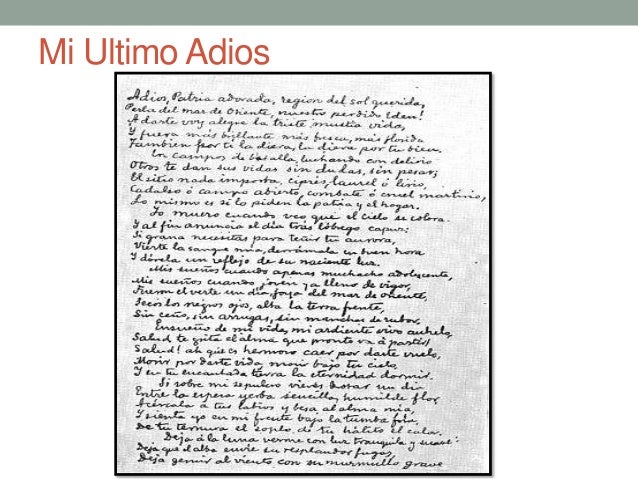 Mi Ultimo Adios
Adios, Patria adorada, region del sol querida,
Perla del mar de Oriente, nuestro perdido Eden!
A darte voy alegre la triste mustia vida,
Y fuera más brillante más fresca, más florida
Tambien por ti la diera, la diera por tu bien.
En campos de batalla, luchando con delirio
Otros te dan sus vidas sin dudas, sin pesar;
El sitio nada importa, ciprés, laurel ó lirio,
Cadalso ó campo abierto, combate ó cruel martirio,
Lo mismo es si lo piden la patria y el hogar.
Yo muero cuando veo que el cielo se colora
Y al fin anuncia el día trás lóbrego capuz;
Si grana necesitas para teñir tu aurora,
Vierte la sangre mía, derrámala en buen hora
Y dórela un reflejo de su naciente luz.
Mis sueños cuando apenas muchacho adolescente,
Mis sueños cuando joven ya lleno de vigor,
Fueron el verte un día, joya del mar de Oriente,
Secos los negros ojos, alta la tersa frente,
Sin ceño, sin arrugas, sin manchas de rubor.
Ensueño de mi vida, mi ardiente vivo anhelo,
Salud te grita el alma que pronto va á partir!
Salud! ah que es hermoso caer por darte vuelo,
Morir por darte vida, morir bajo tu cielo,
Y en tu encantada tierra la eternidad dormir.
Si sobre mi sepulcro vieres brotar un dia
Entre la espesa yerba sencilla, humilde flor,
Acércala a tus labios y besa al alma mia,
Y sienta yo en mi frente bajo la tumba fria
De tu ternura el soplo, de tu hálito el calor.
Deja á la luna verme con luz tranquila y suave:
Deja que el alba envie su resplandor fugaz,
Deja gemir al viento con su murmullo grave